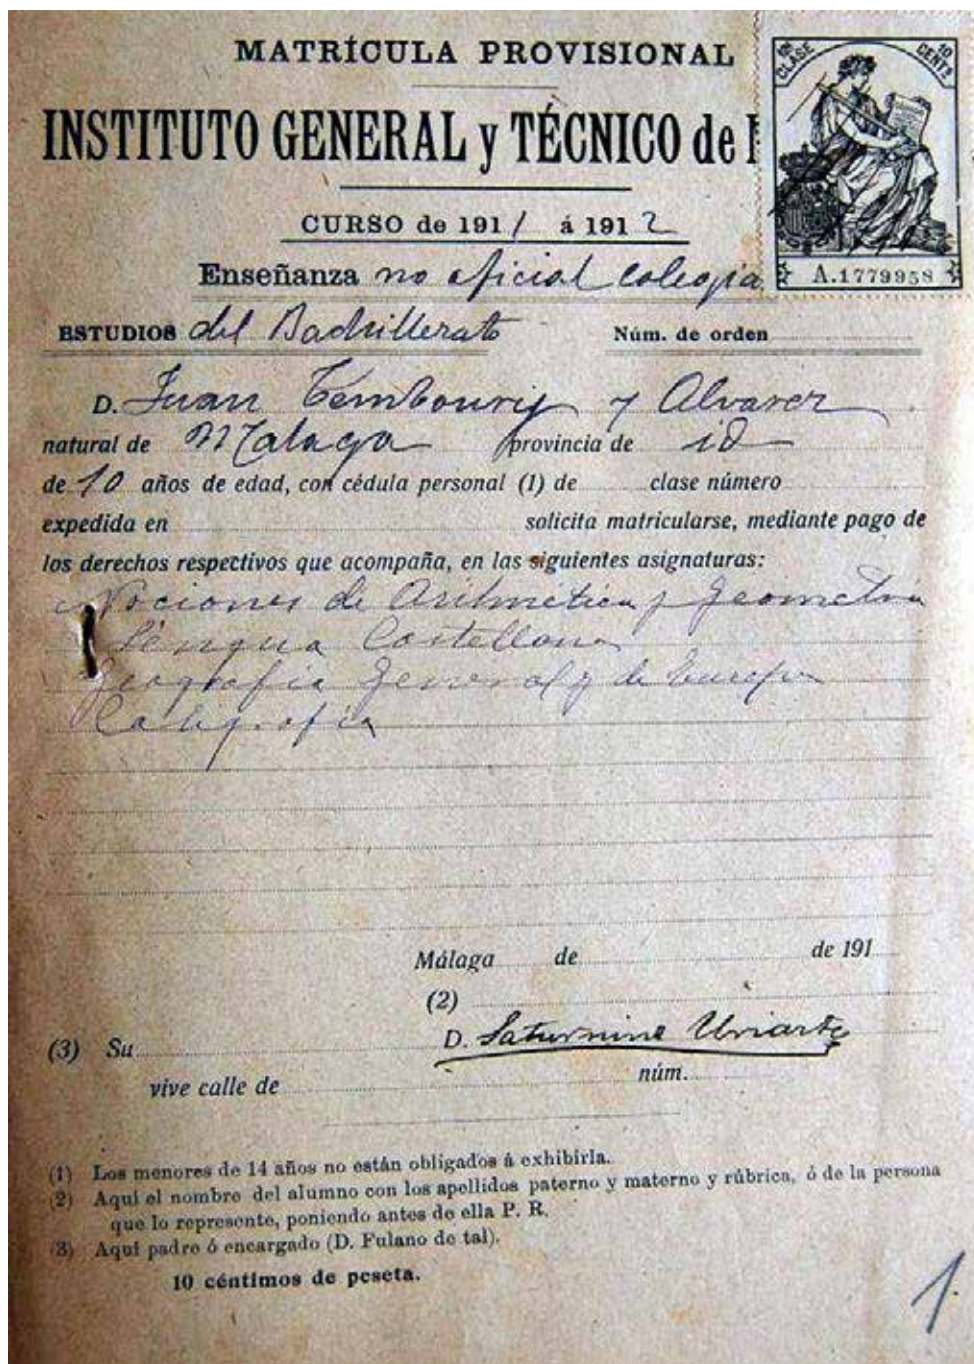 MATRÍCULA PROVISIONAL
10ª CLASE 10 CENTS
INSTITUTO GENERAL y TÉCNICO de
CURSO de 1911 á 1912
A.1779958
Enseñanza no oficial colegia
ESTUDIOS del Bachillerato Núm. de orden
D. Juan Temboury y Alvarez
natural de Malaga provincia de id
de 10 años de edad, con cédula personal (1) de clase número
expedida en solicita matricularse, mediante pago de
los derechos respectivos que acompaña, en las siguientes asignaturas:
Nociones de Aritmética y Geometria
Lengua Castellana
Geografia General y de Europa
Caligrafia
Málaga de de 191
(2)
(3) Su D. Saturnino Uriarte
vive calle de núm.
(1) Los menores de 14 años no están obligados á exhibirla.
(2) Aquí el nombre del alumno con los apellidos paterno y materno y rúbrica, ó de la persona
que lo represente, poniendo antes de ella P. R.
(3) Aquí padre ó encargado (D. Fulano de tal).
10 céntimos de peseta.
1.